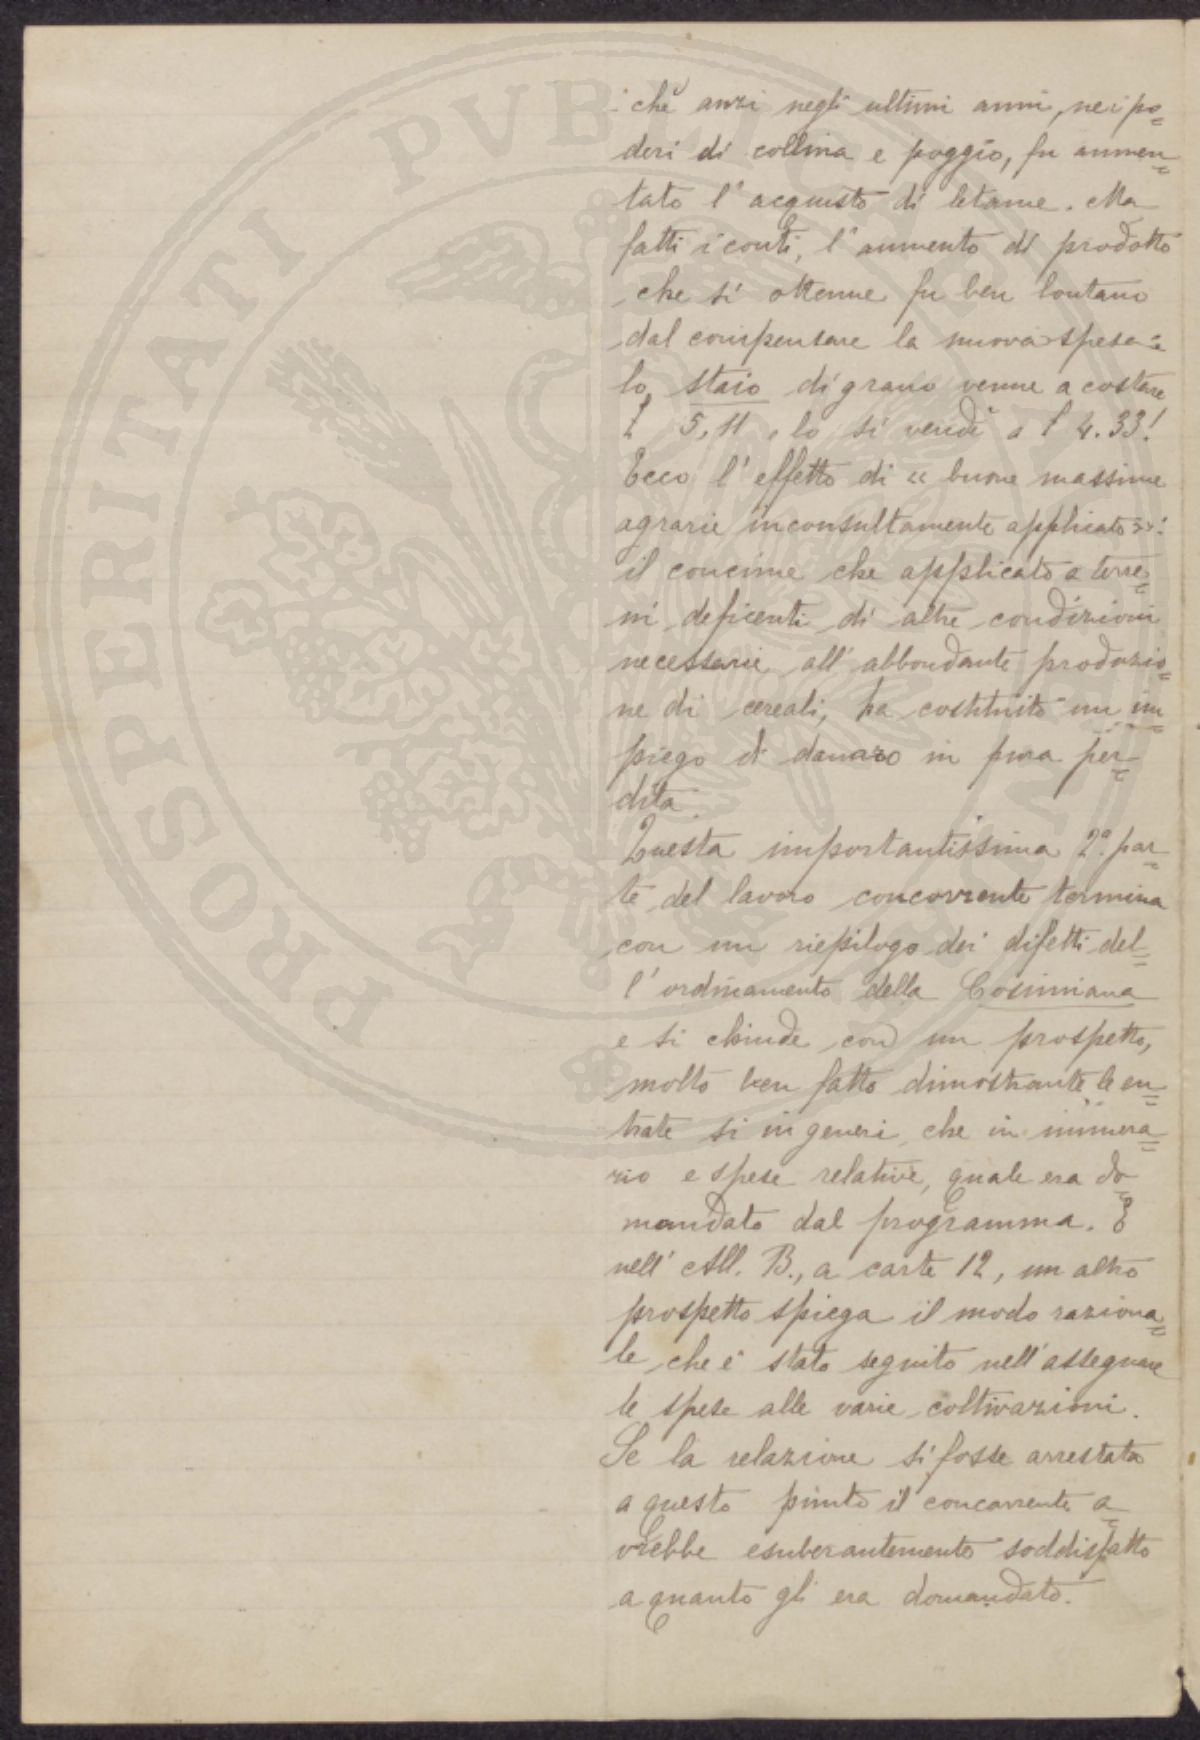 chè anzi negli ultimi anni, nei po=
deri di collina e poggio, fu aumen=
tato l'acquisto di letame. Ma
fatti i conti, l'aumento di prodotto
che si ottenne fu ben lontano
dal compensare la nuova spesa e
lo staio di grano venne a costare
£ 5,11, lo si vendè a £ 4.33!
Ecco l'effetto di « buone massime
agrarie inconsultamente applicate »:
il concime che applicato a terre=
ni deficenti di altre condizioni
necessarie all'abbondante produzio=
ne di cereali, ha costituito un im=
piego di danaro in pura per=
dita.
Questa importantissima 2ª. par=
te del lavoro concorrente termina
con un riepilogo dei difetti del=
l'ordinamento della Cosimiana
e si chiude con un prospetto,
molto ben fatto dimostrante le en=
trate si in generi che in numera=
rio e spese relative, quale era do=
mandato dal programma. E
nell'All. B., a carte 12, un altro
prospetto spiega il modo raziona=
le che è stato seguito nell'assegnare
le spese alle varie coltivazioni.
Se la relazione si fosse arrestata
a questo punto il concorrente a=
vrebbe esuberantemente soddisfatto
a quanto gli era domandato.
PROSPERITATI PVBLICAE